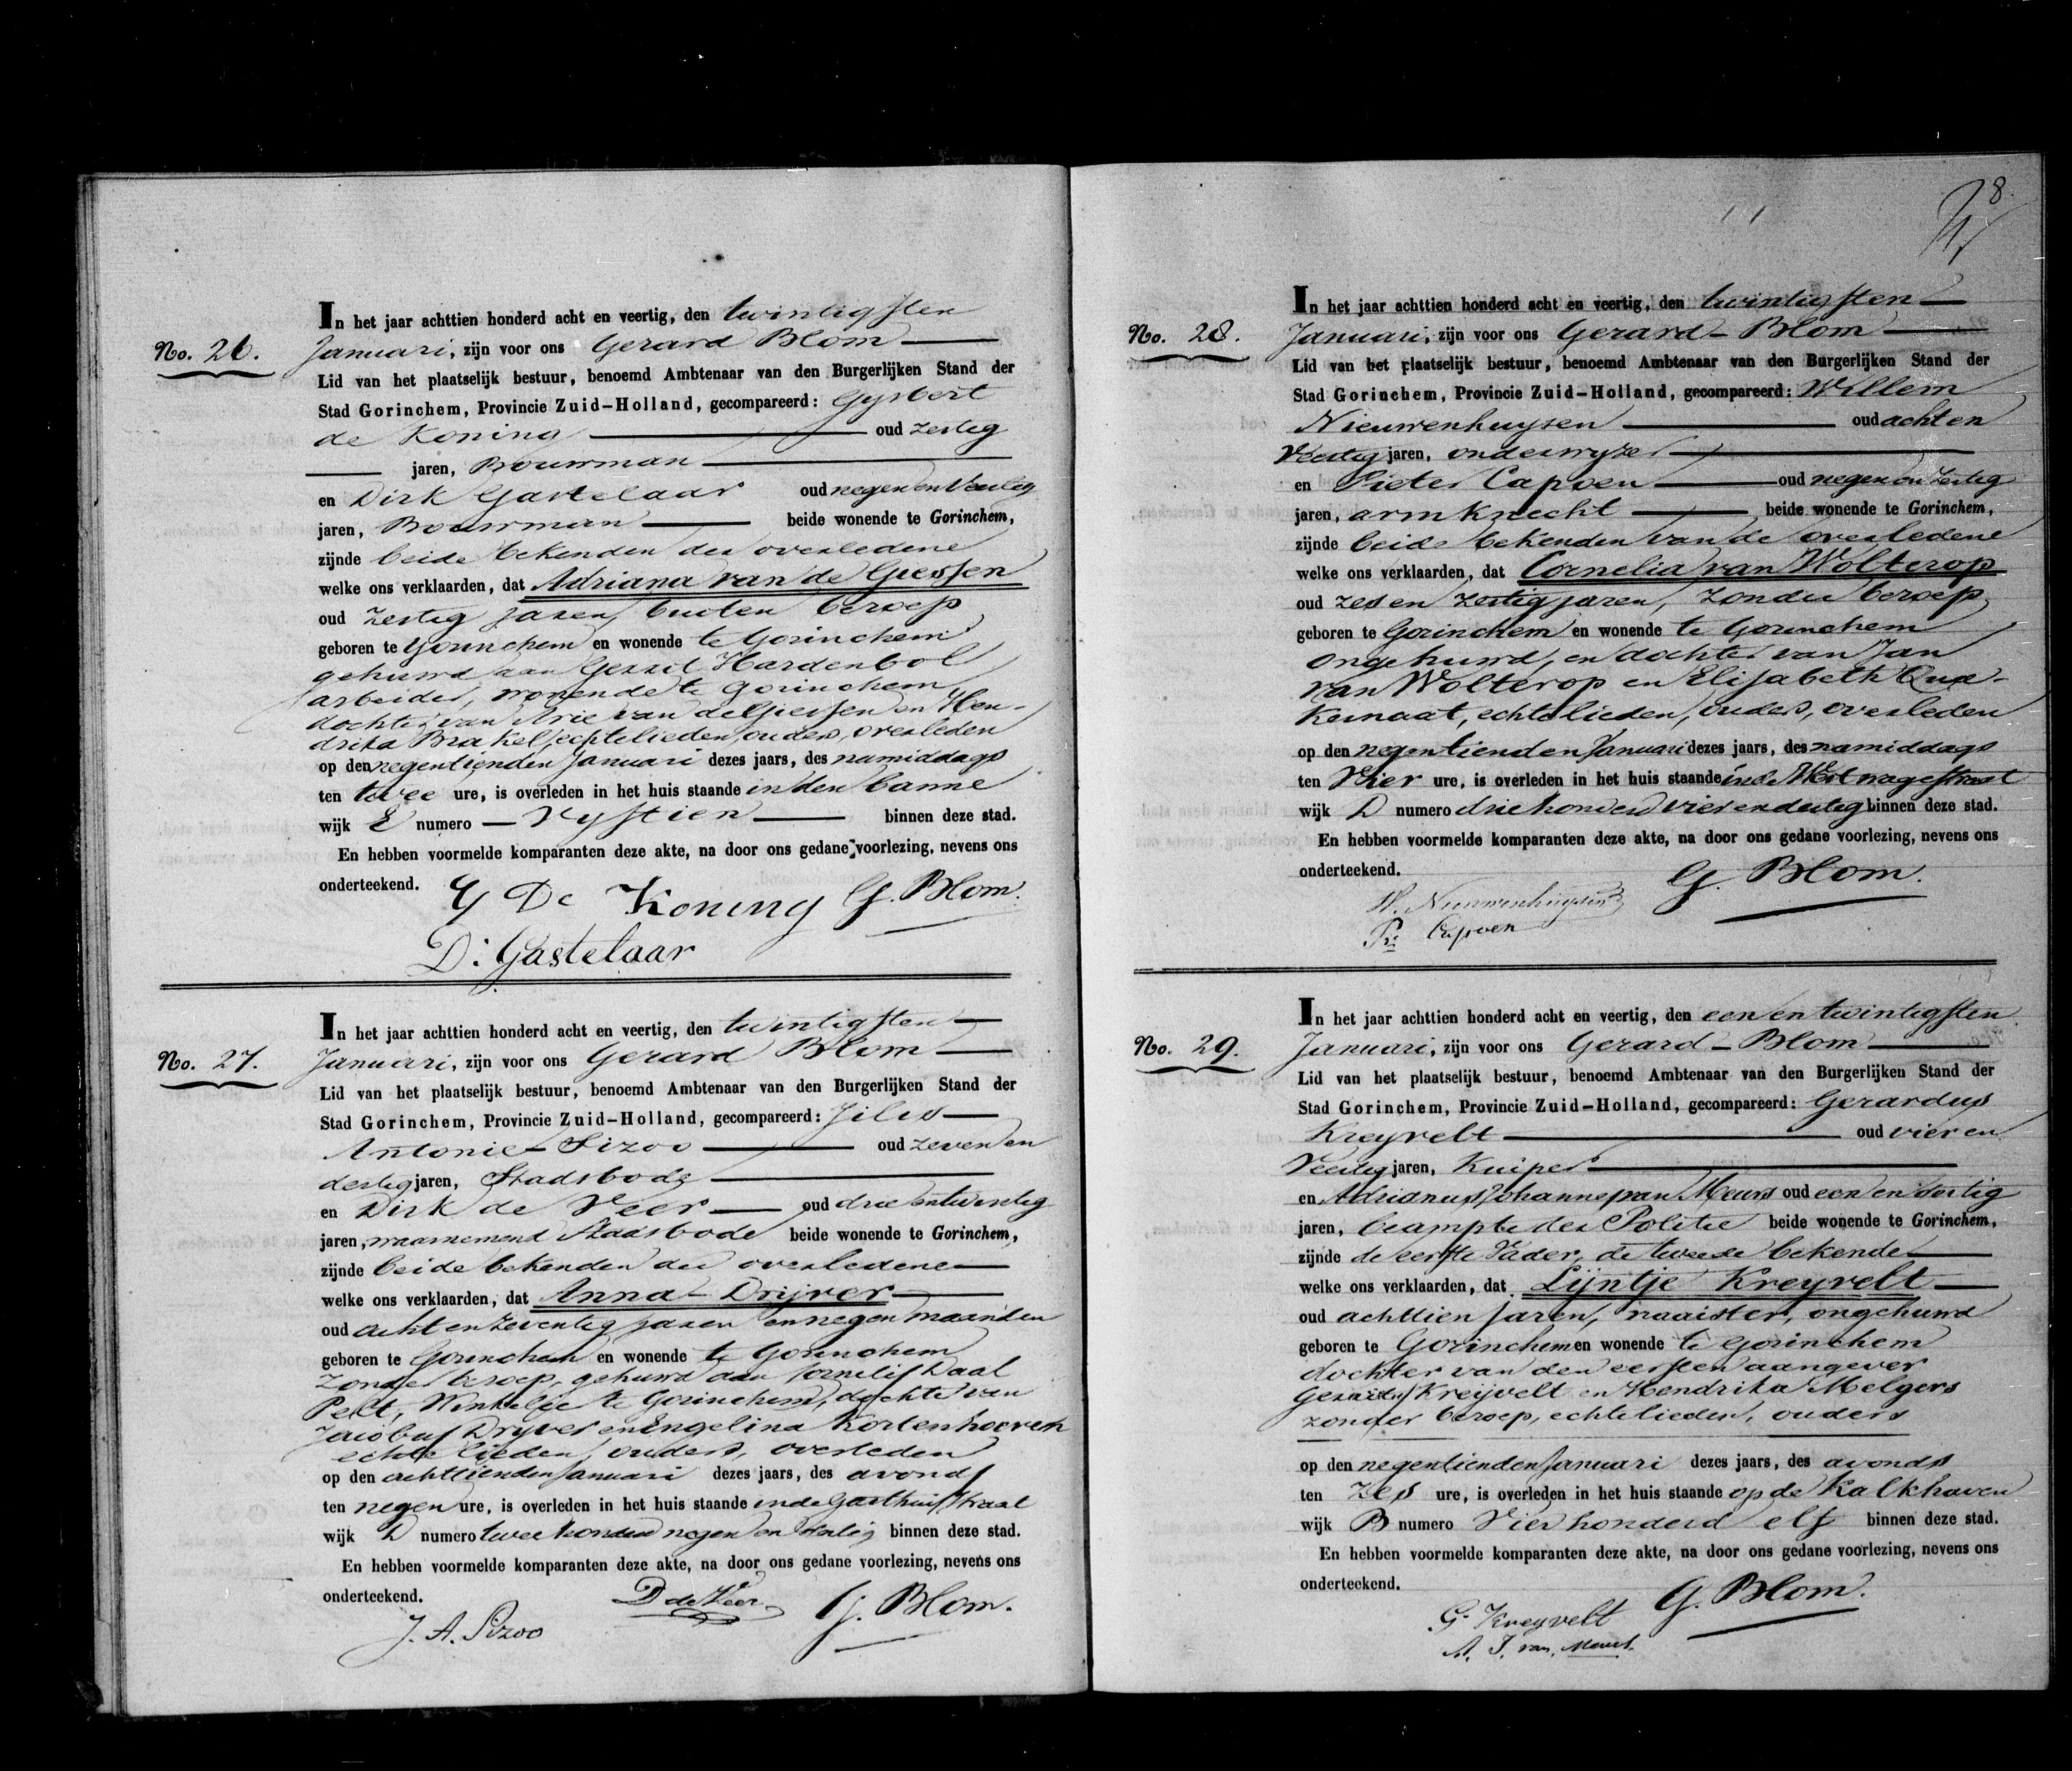 No. 26.
In het jaar achttien honderd acht en veertig, den twintigsten
Januari, zijn voor ons Gerard Blom
Lid van het plaatselijk bestuur, benoemd Ambtenaar van den Burgerlijken Stand der
Stad Gorinchem, Provincie Zuid-Holland, gecompareerd: Gysbert
de Koning oud zestig
jaren, Bouwman
en Dirk Gastelaar oud negen en
jaren, Bouwman beide wonende te Gorinchem,
zijnde beide bekenden der overledene
welke ons verklaarden, dat Adriana van de Giessen
oud zestig jaren, buiten beroep
geboren te Gorinchem en wonende te Gorinchem
gehuwd aan Gerrit Hardenbol
arbeider, wonende te Gorinchem,
dochter van Arie van de Giessen en Hen-
drika Brakel, echtelieden, ouders, overleden
op den negentienden Januari dezes jaars, des namiddags
ten twee ure, is overleden in het huis staande in den banne
wijk E numero Vyftien binnen deze stad.
En hebben voormelde komparanten deze akte, na door ons gedane voorlezing, nevens ons
onderteekend.
G De Koning G. Blom.
D: Gastelaar
No. 27.
In het jaar achttien honderd acht en veertig, den twintigsten
Januari, zijn voor ons Gerard Blom
Lid van het plaatselijk bestuur, benoemd Ambtenaar van den Burgerlijken Stand der
Stad Gorinchem, Provincie Zuid-Holland, gecompareerd: Jilis
Antonie Sizoo oud zeven en
dertig jaren, Stadsbode
en Dirk de Veer oud drie en twintig
jaren, waarnemend Stadsbode beide wonende te Gorinchem,
zijnde beide bekenden der overledene
welke ons verklaarden, dat Anna Drijver
oud acht en zeventig jaren en negen maanden
geboren te Gorinchem en wonende te Gorinchem
zonder beroep, gehuwd aan Cornelis Daal
Pelt, Winkelier te Gorinchem, dochter van
Jacobus Dryver en Engelina Kortenhoeven
echte lieden, ouders, overleden
op den achttienden Januari dezes jaars, des avonds
ten negen ure, is overleden in het huis staande in de Gasthuisstraat
wijk D numero twee honderd negen en binnen deze stad.
En hebben voormelde komparanten deze akte, na door ons gedane voorlezing, nevens ons
onderteekend.
D de Veer G. Blom.
J. A. Sizoo
8
No. 28.
In het jaar achttien honderd acht en veertig, den twintigsten
Januari, zijn voor ons Gerard Blom
Lid van het plaatselijk bestuur, benoemd Ambtenaar van den Burgerlijken Stand der
Stad Gorinchem, Provincie Zuid-Holland, gecompareerd: Willem
Nieuwenhuysen oud acht en
Veertig jaren, onderwyzer
en Pieter Capoen oud negen en zestig
jaren, armknecht beide wonende te Gorinchem,
zijnde beide bekenden van de overledene
welke ons verklaarden, dat Cornelia van Wolterop
oud zes en zestig jaren, zonder beroep,
geboren te Gorinchem en wonende te Gorinchem
ongehuwd, en dochter van Jan
van Wolterop en Elisabeth Qua-
kernaat, echtelieden, ouders, overleden
op den negentienden Januari dezes jaars, des namiddags
ten Vier ure, is overleden in het huis staande in de Westwagestraat
wijk D numero driehonderd vier en dertig binnen deze stad.
En hebben voormelde komparanten deze akte, na door ons gedane voorlezing, nevens ons
onderteekend.
G. Blom.
W. Nieuwenhuysen
Pr Capoen
No. 29.
In het jaar achttien honderd acht en veertig, den een en twintigsten
Januari, zijn voor ons Gerard Blom
Lid van het plaatselijk bestuur, benoemd Ambtenaar van den Burgerlijken Stand der
Stad Gorinchem, Provincie Zuid-Holland, gecompareerd: Gerardus
Kreyvelt oud vier en
Veertig jaren, Kuiper
en Adrianus Johannes van Meurs oud een en dertig
jaren, beampte der Politie beide wonende te Gorinchem,
zijnde de eerste Vader, de tweede bekende
welke ons verklaarden, dat Lijntje Kreyvelt
oud achttien jaren, naaister, ongehuwd
geboren te Gorinchem en wonende te Gorinchem
dochter van den eersten aangever
Gerardus Kreijvelt en Hendrika Melgers
zonder beroep, echtelieden, ouders
op den negentienden Januari dezes jaars, des avonds
ten Zes ure, is overleden in het huis staande op de Kalkhaven
wijk B numero Vier honderd elf binnen deze stad.
En hebben voormelde komparanten deze akte, na door ons gedane voorlezing, nevens ons
onderteekend.
G. Blom.
G. Kreyvelt
A. J. van Meurs